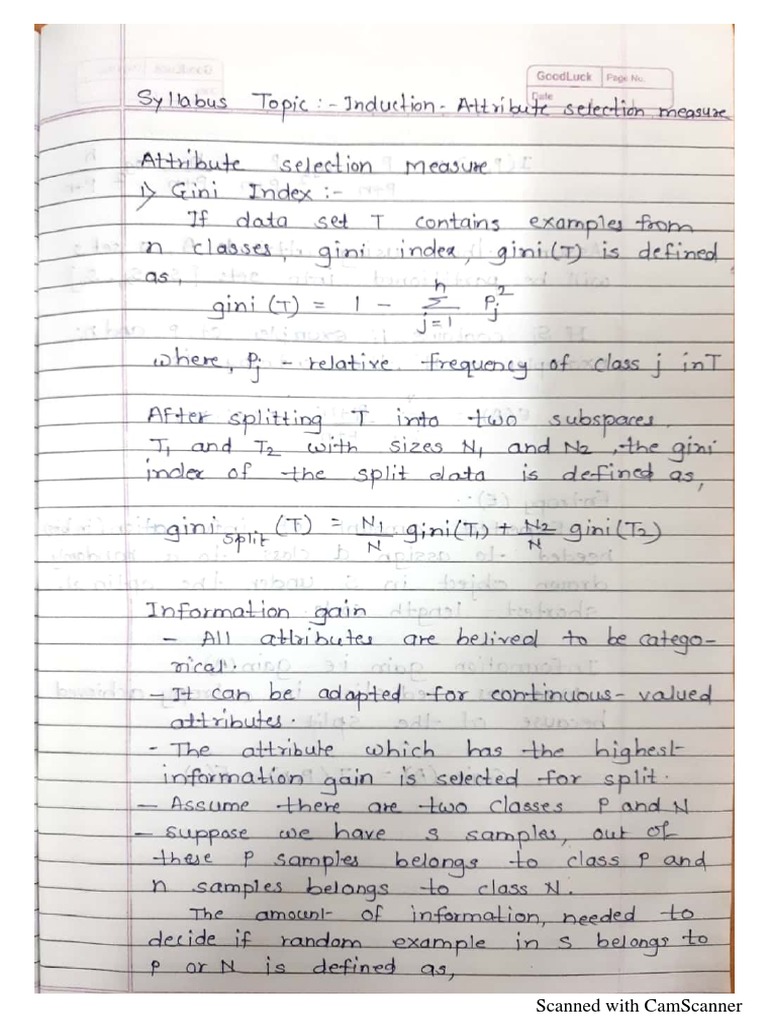 GoodLuck Page No.
Date
Syllabus Topic :- Induction - Attribute selection measure
Attribute selection measure
1) Gini Index :-
If data set T contains examples from
n classes, gini index, gini(T) is defined
as,
gini (T) = 1 - n Σ j=1 Pj²
where, Pj - relative frequency of class j in T
After splitting T into two subspaces
T1 and T2 with sizes N1 and N2, the gini
index of the split data is defined as,
gini split (T) = N1/N gini(T1) + N2/N gini(T2)
Information gain
- All attributes are belived to be catego-
rical.
- It can be adapted for continuous-valued
attributes.
- The attribute which has the highest
information gain is selected for split.
- Assume there are two classes P and N
- Suppose we have S samples, out of
these P samples belongs to class P and
n samples belongs to class N.
The amount of information, needed to
decide if random example in S belongs to
P or N is defined as,
Scanned with CamScanner